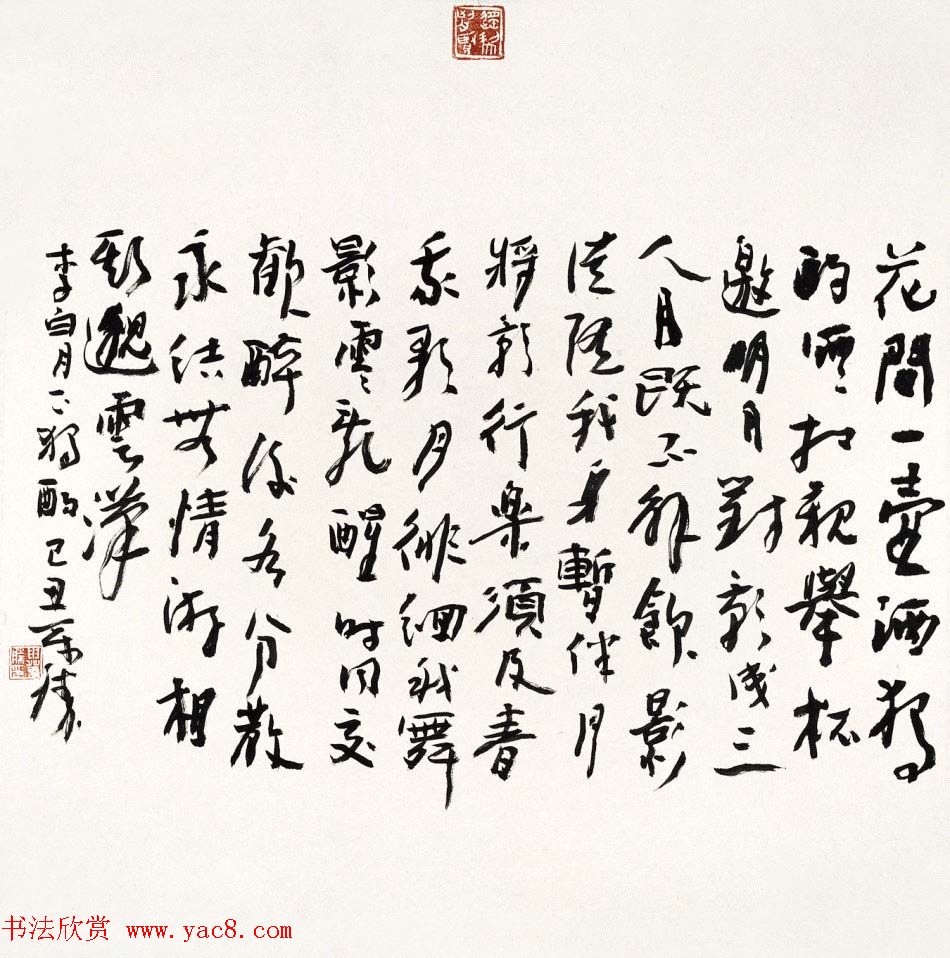 花間一壺酒獨
酌無相親舉杯
邀明月對影成三
人月既不解飲影
徒隨我身暫伴月
將影行樂須及春
我歌月徘徊我舞
影零亂醒時同交
歡醉後各分散
永結無情游相
期邈雲漢
李白月下獨酌 己丑
书法欣赏 www.yac8.com